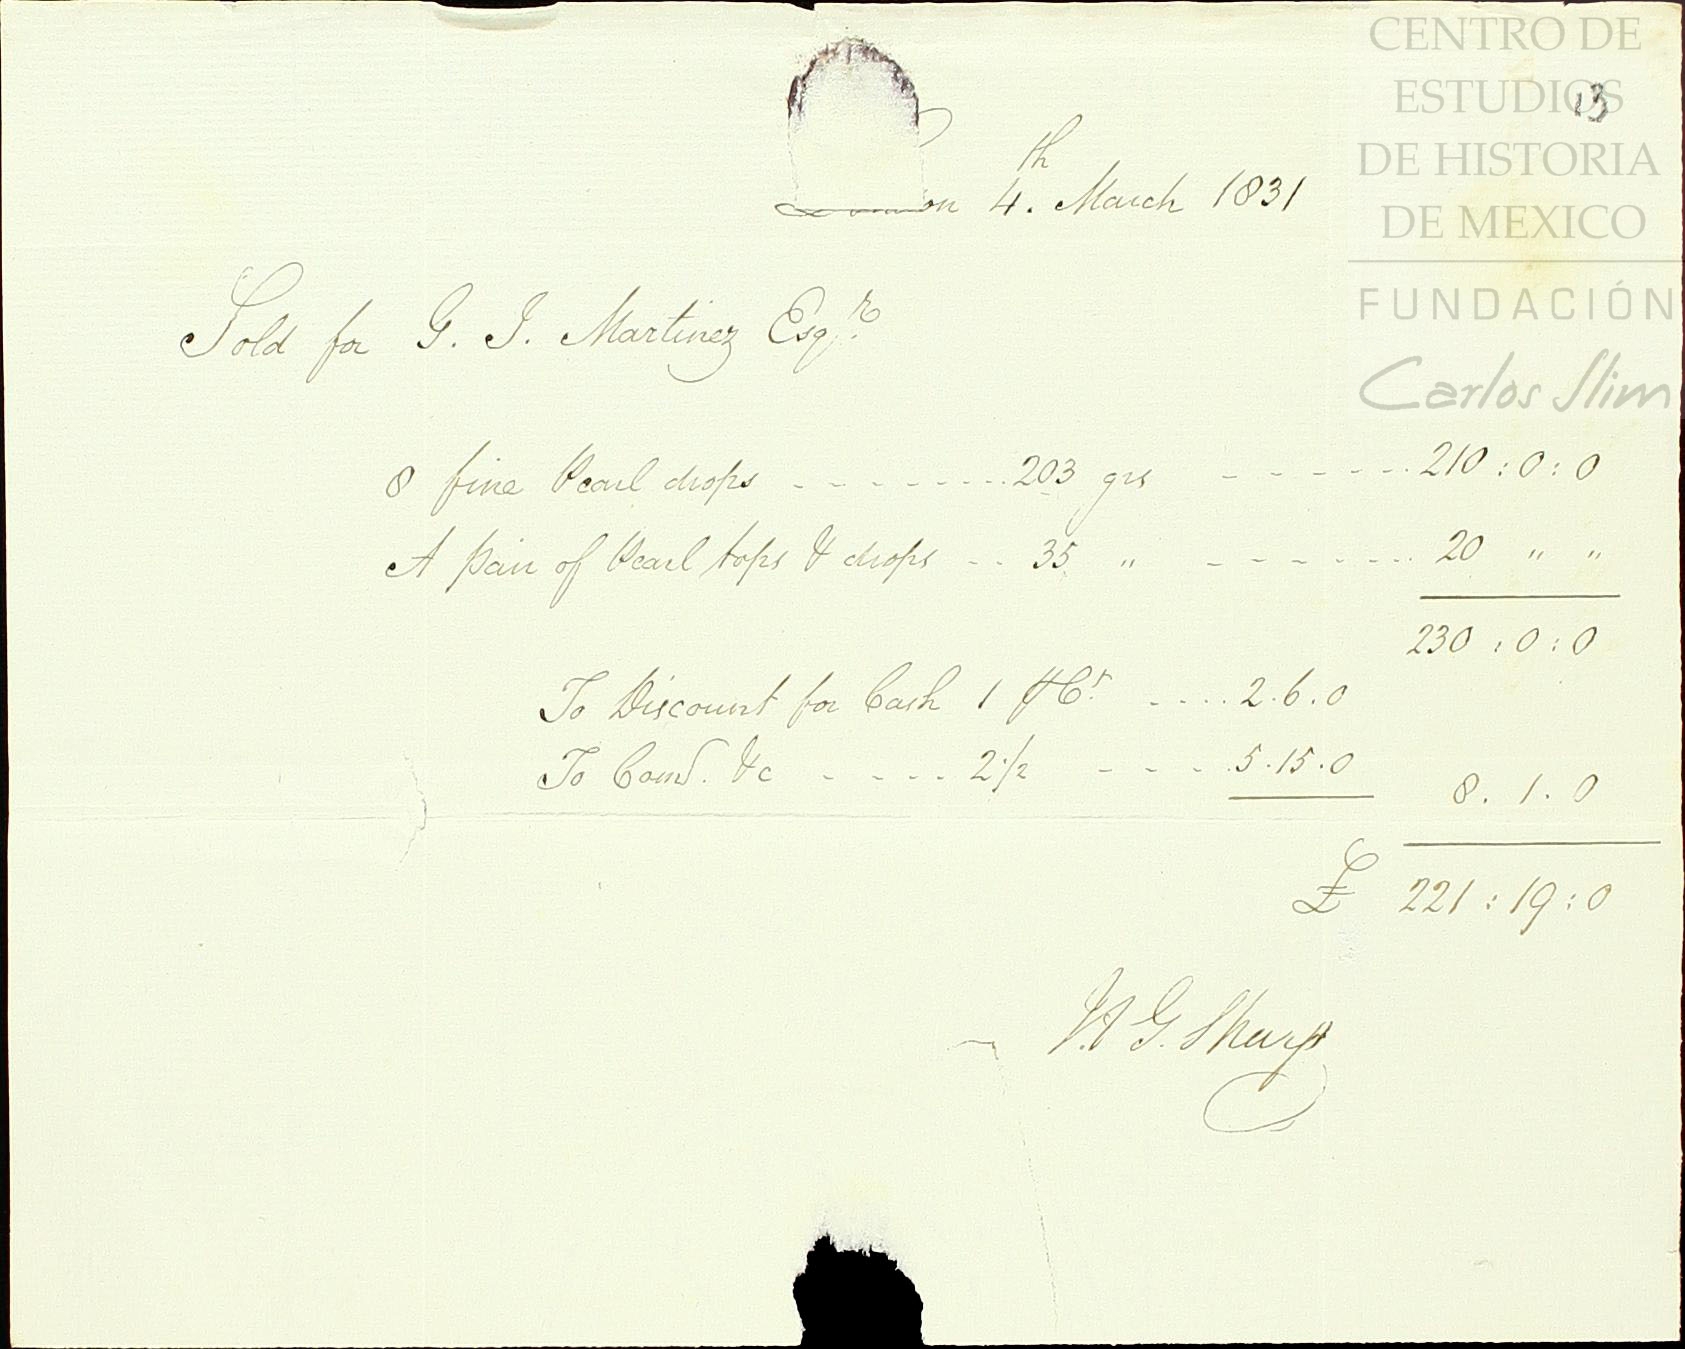 CENTRO DE
ESTUDIOS
DE HISTORIA
DE MEXICO
FUNDACIÓN
Carlos Slim
13
on 4th. March 1831
Sold for G. J. Martinez Esqre.
8 fine Pearl drops - - - - - - - - - 203 grs - - - - - - 210 : 0 : 0
A pair of Pearl tops & drops - - 35 " - - - - - - - 20 " "
230 : 0 : 0
To Discount for Cash 1 PCt. - - - - 2.6.0
To Comn. &c - - - - 2 1/2 - - - - 5.15.0 8.1.0
£ 221 : 19 : 0
G. Sharp